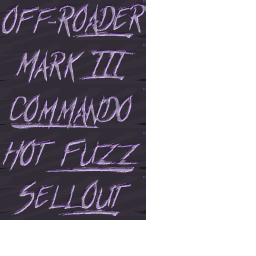 OFF-ROADER
MARK III
COMMANDO
HOT FUZZ
SELLOUT